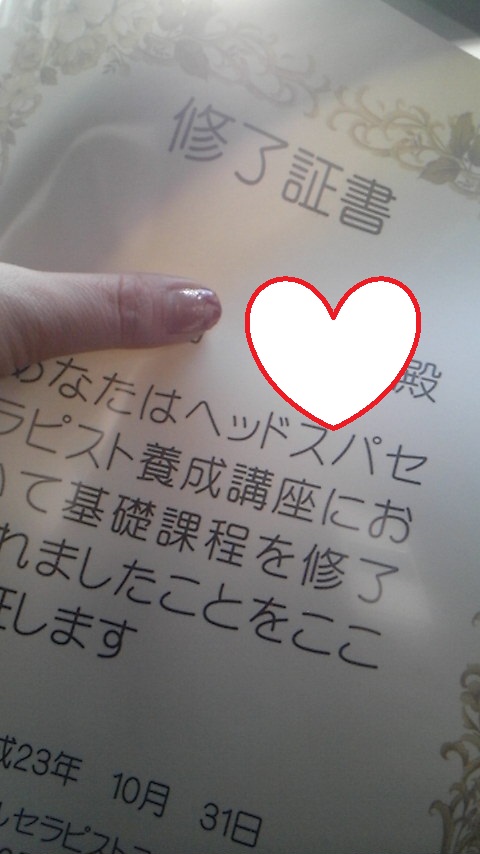 修了証書
殿
あなたはヘッドスパセ
ラピスト養成講座にお
いて基礎課程を修了
れましたことをここ
証します
成23年 10月 31日
しセラピスト